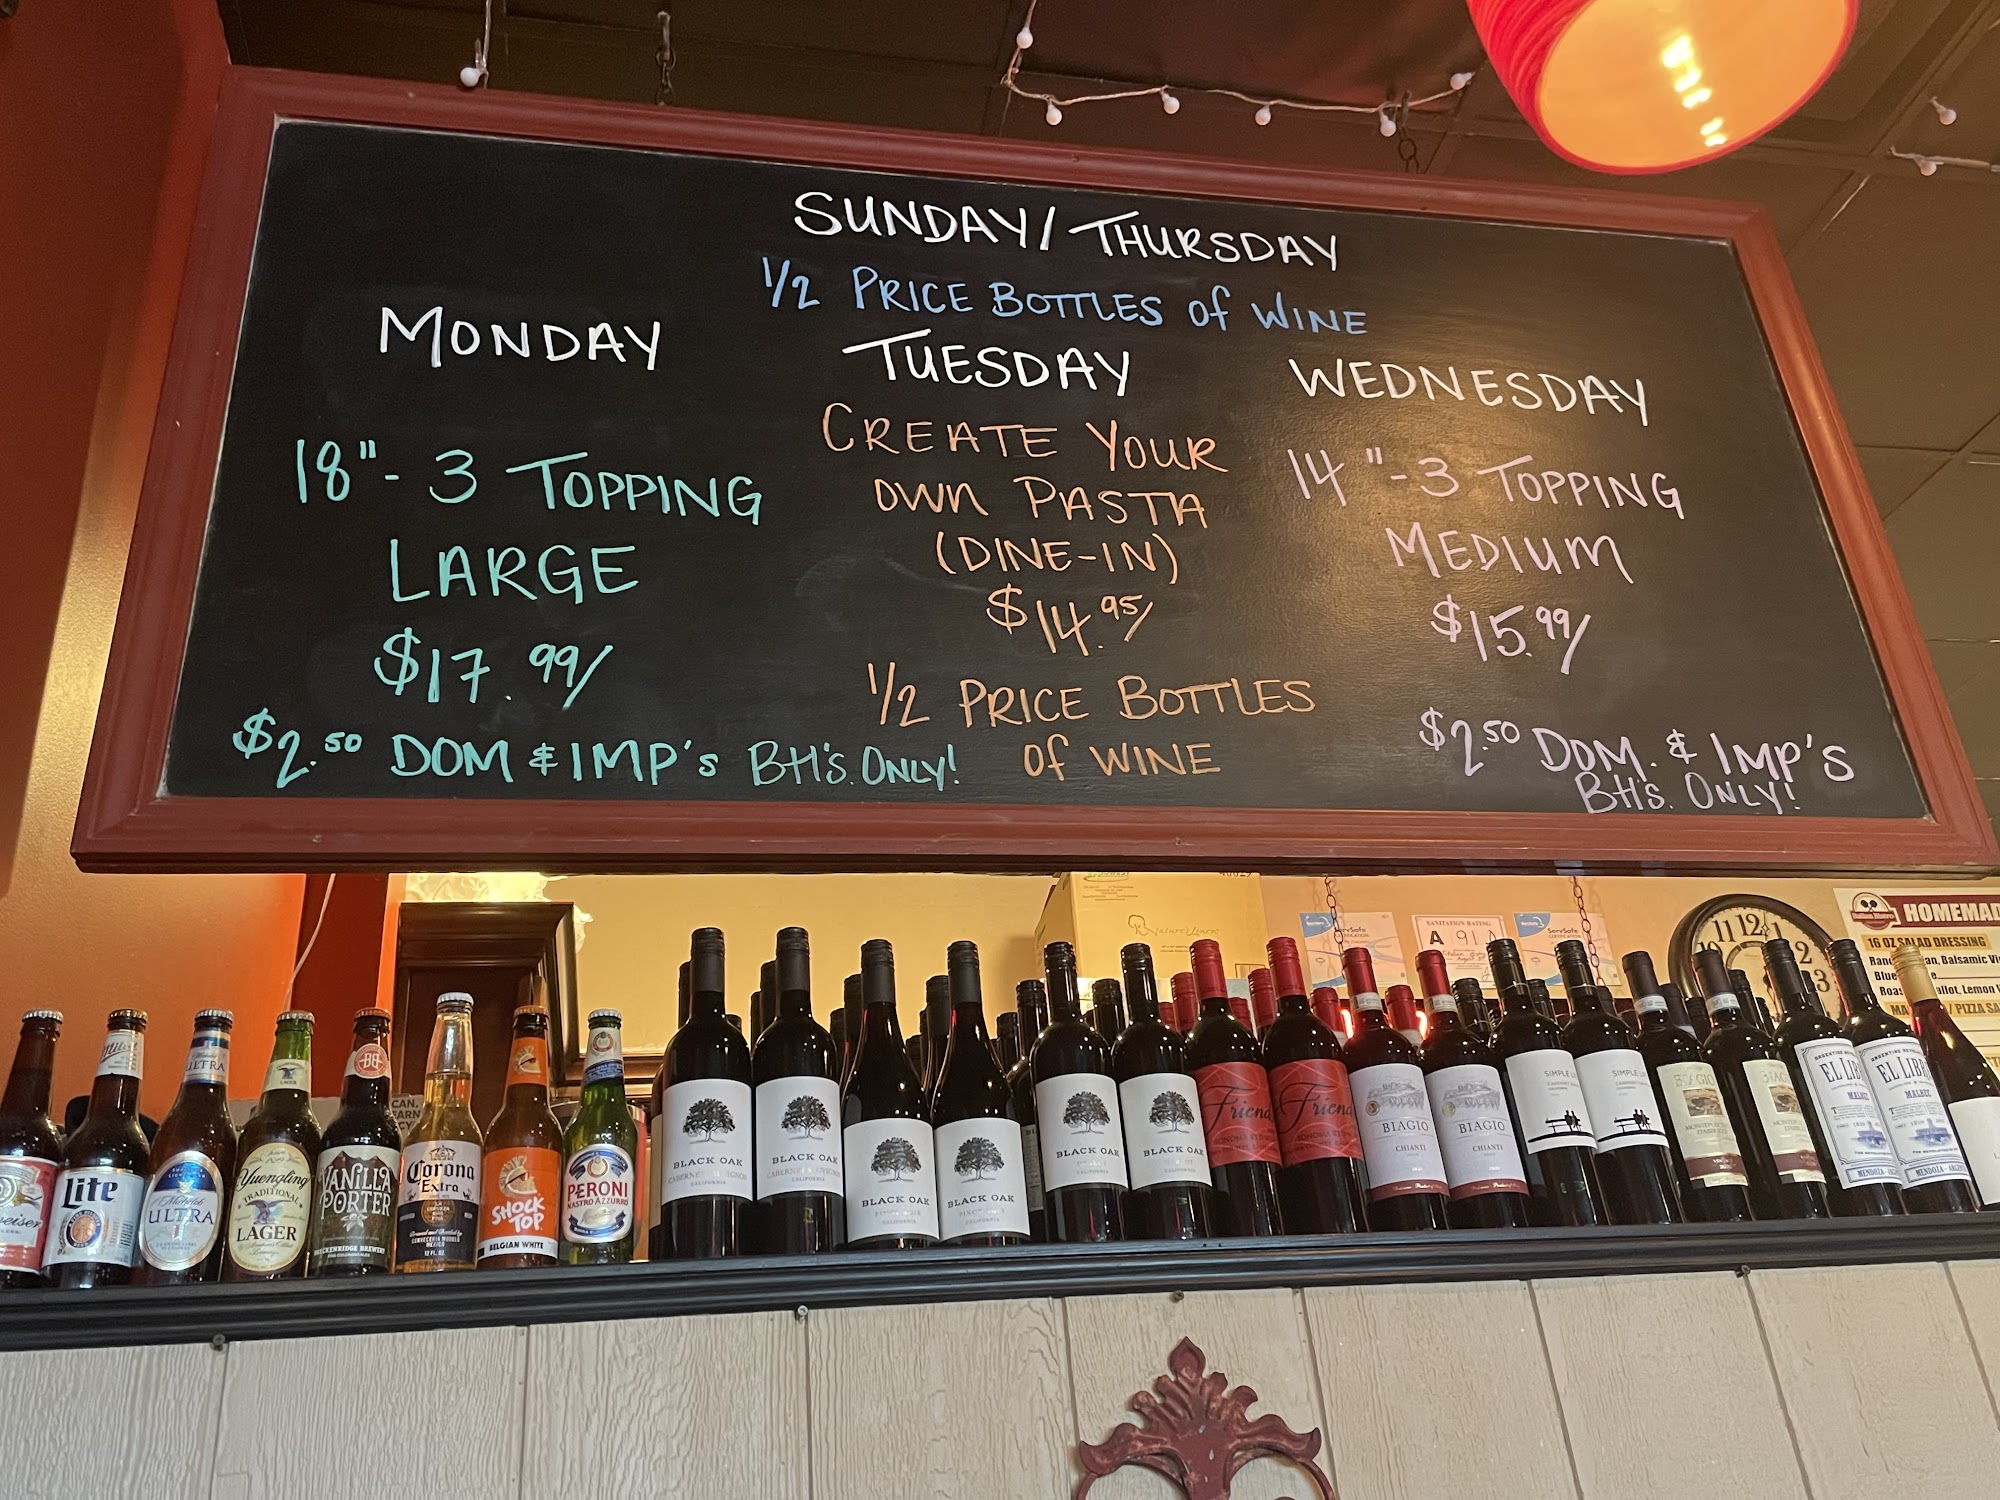 SUNDAY/THURSDAY
1/2 PRICE BOTTLES of WINE
MONDAY
18"-3 TOPPING
LARGE
$17.99/
$2.50 DOM & IMP's BtH's. ONLY!
TUESDAY
CREATE YOUR
OWN PASTA
(DINE-IN)
$14.95/
1/2 PRICE BOTTLES
of WINE
WEDNESDAY
14"-3 TOPPING
MEDIUM
$15.99/
$2.50 DOM. & IMP'S
BtH's. ONLY!
SANITATION RATING
A 91
ServSafe
CERTIFICATION
ServSafe
CERTIFICATION
11 12 1
2
3
HOMEMAD
16 OZ SALAD DRESSING
Balsamic
Lemon
Lite
Michelob
ULTRA
ULTRA
Yuengling
TRADITIONAL
LAGER
VANILLA
PORTER
BRECKENRIDGE BREWERY
Corona
Extra
CERVECERIA MODELO
MEXICO
SHOCK
TOP
BELGIAN WHITE
PERONI
NASTRO AZZURRO
BLACK OAK
CABERNET SAUVIGNON
CALIFORNIA
BLACK OAK
CABERNET SAUVIGNON
CALIFORNIA
BLACK OAK
PINOT NOIR
CALIFORNIA
BLACK OAK
PINOT NOIR
CALIFORNIA
BLACK OAK
CALIFORNIA
BLACK OAK
CALIFORNIA
Friend
Friend
BIAGIO
CHIANTI
BIAGIO
CHIANTI
SIMPLE
SIMPLE
ARGENTINE
EL LIB
MALBEC
MENDOZA
EL LIBR
MALBEC
MENDOZA